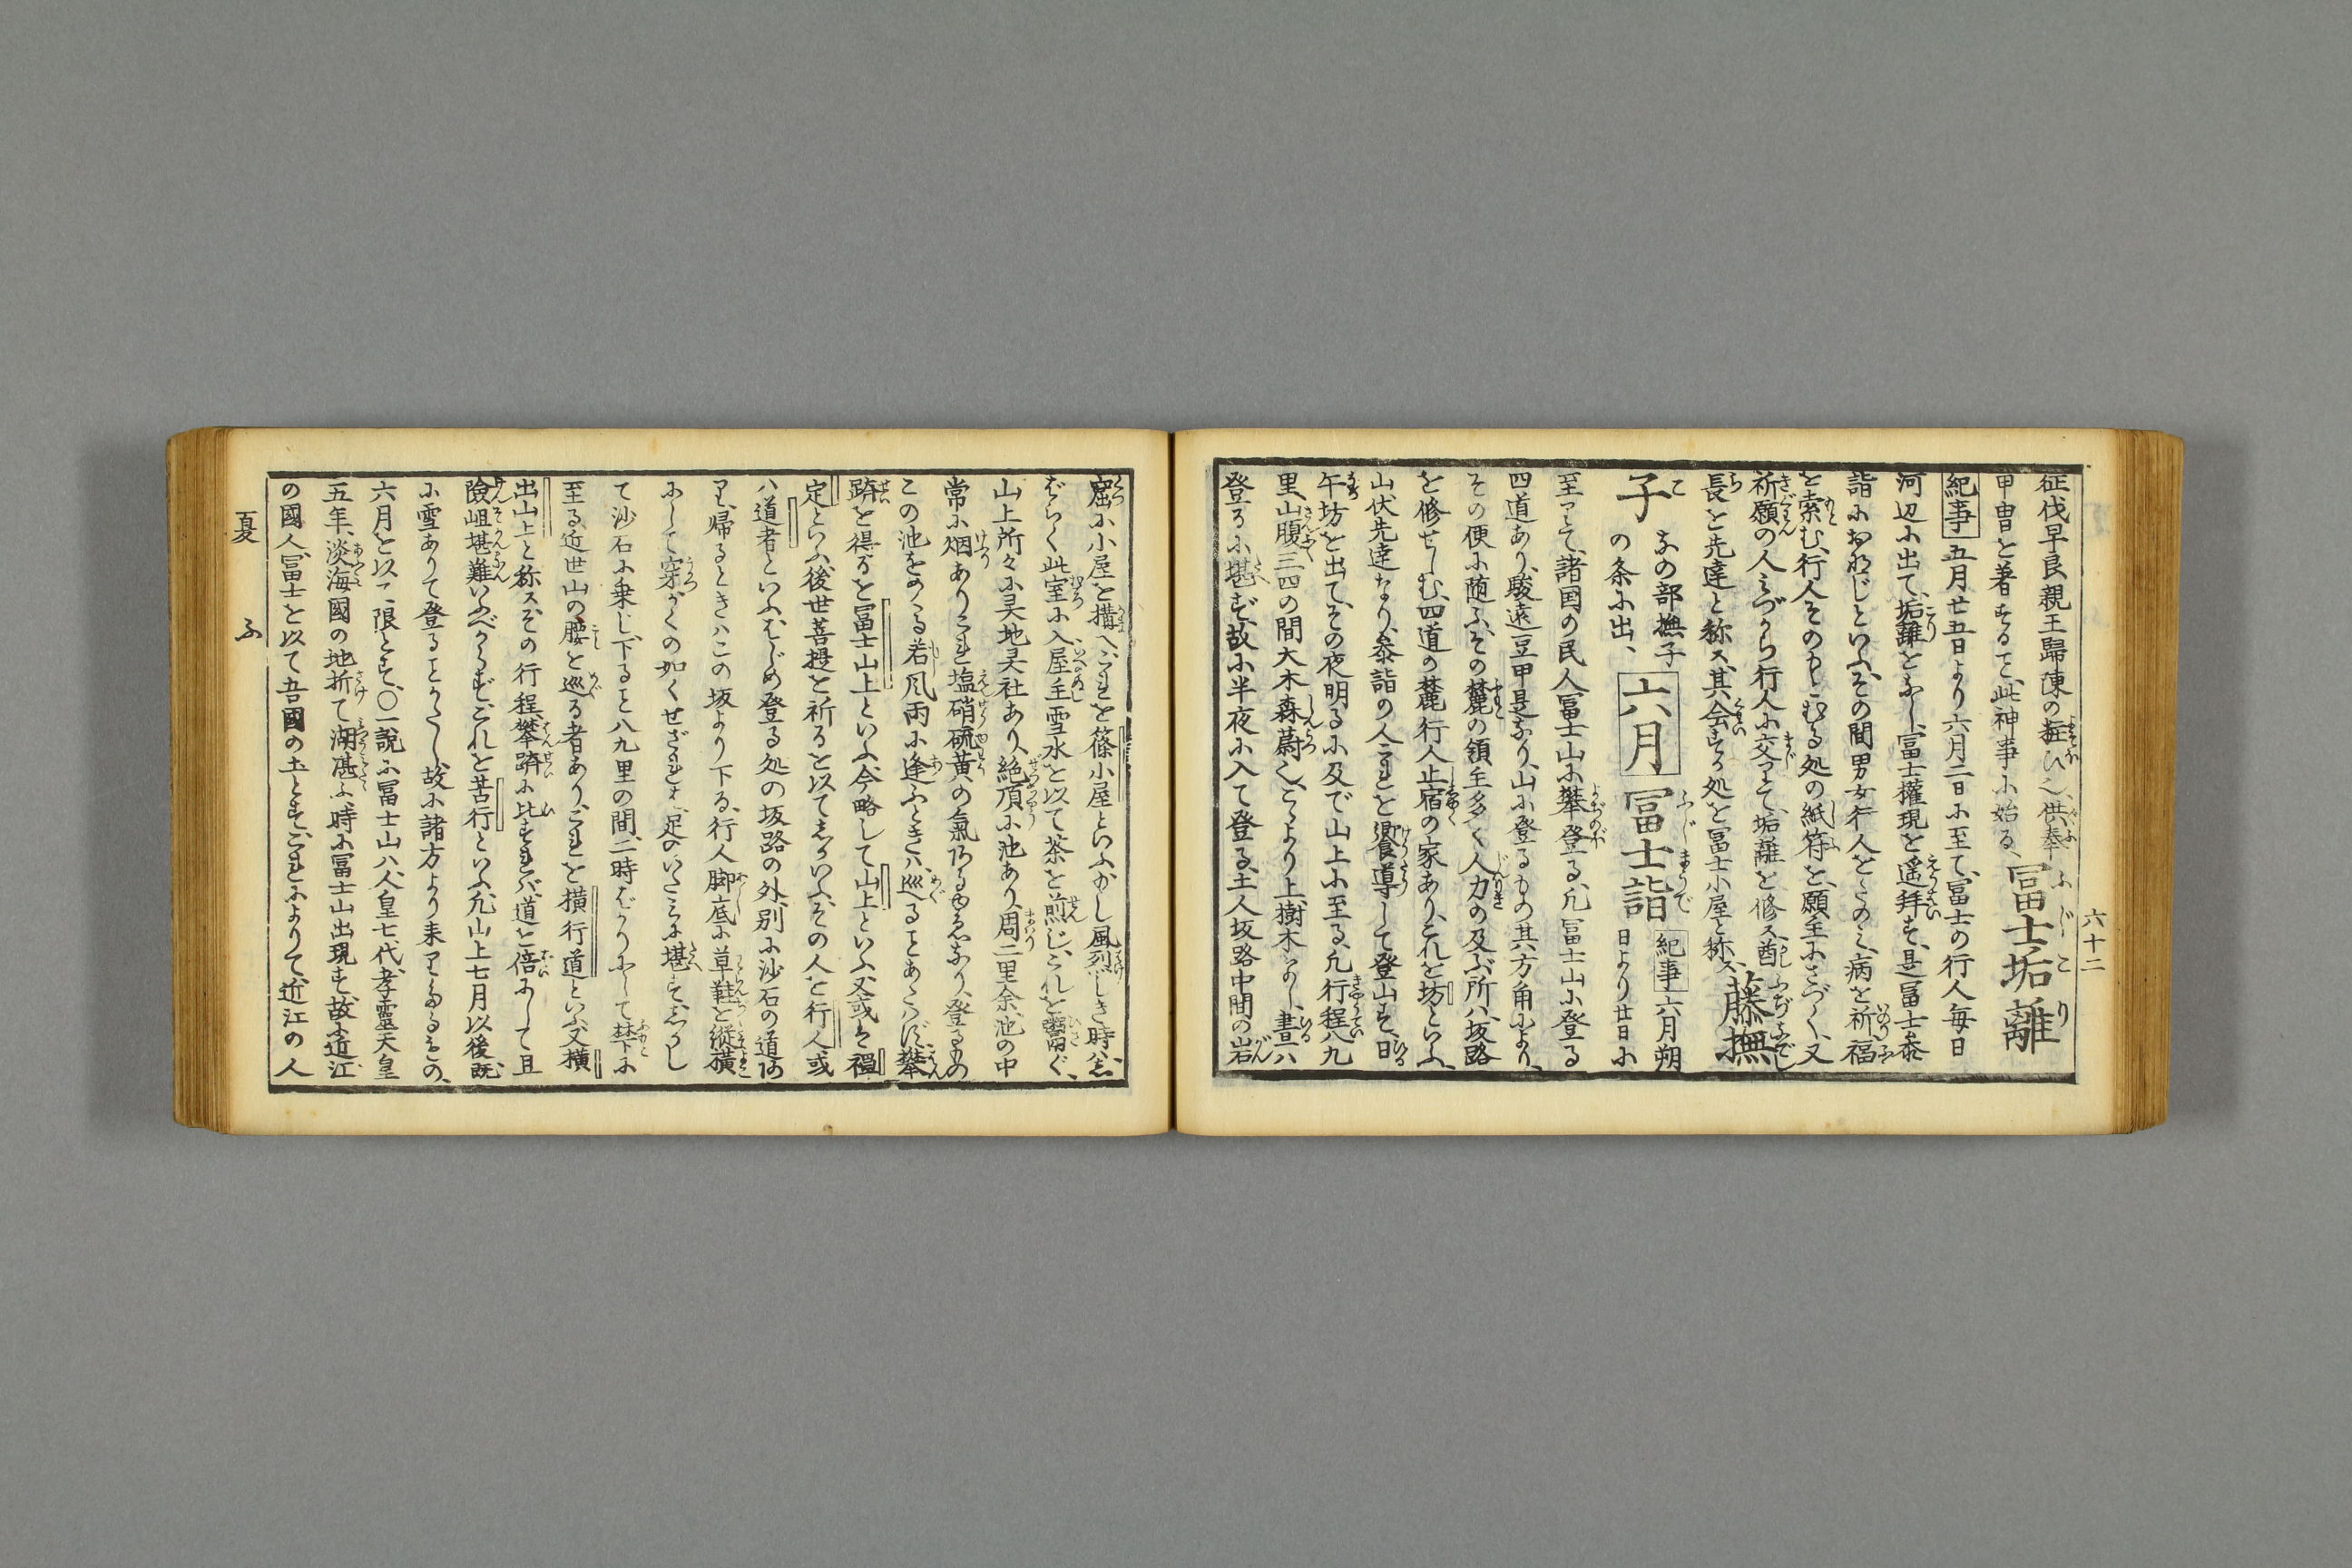 六十二
征伐早良親王歸陳の粧ひ也、供奉
甲冑を着するこ、此神事に始る、冨士垢離
紀事五月廿五日より六月二日に至て、冨士の行人毎日
河辺に出て、垢離をなし、冨士權現を遥拜す、是冨士參
詣におなじといふ、その間男女行人をたのみ、病を祈福
を索む、行人そのもとむる処の紙符を、願主にさづく、又
祈願の人みづから行人に交りて、垢離を修ス、酋
長を先達と称ス、其会する処を冨士小屋と称ス、藤撫
子 なの部撫子の条に出、 六月 冨士詣 紀事六月朔日より廿日に
至りて、諸国の民人、冨士山に攀登る、凡冨士山に登る
四道あり、駿遠豆甲是なり、山に登るもの其方角により、
その便に随ふ、その麓の領主多く人力の及ぶ所ハ、坂路
を修せしむ、四道の麓、行人止宿の家あり、これを坊といふ、
山伏先達なり、參詣の人これを饗導して登山す、日
午坊を出て、その夜明るに及で山上に至る、凡行程八九
里、山腹三四の間大木森蔚く、こゝより上、樹木なし、晝ハ
登るに堪ず、故に半夜に入て登る、土人坂路中間の岩
窟に小屋を搆へ、これを篠小屋といふ、もし風烈しき時ハ、し
ばらく此室に入、屋主雪水を以て茶を煎じ、これを鬻ぐ、
山上所々に灵地灵社あり、絶頂に池あり、周二里余、池の中
常に烟あり、これ塩硝硫黄の氣ある也なり、登るもの
この池をめぐる、若凨雨に逢ふときハ、巡ることあたハず、攀
躋を得るを冨士山上といふ、今略して山上といふ、又或を禅
定といふ、後世菩提を祈るを以てしかいふ、その人を行人或
ハ道者といふ、はじめ登る処の坂路の外、別に沙石の道あ
り、帰るときハこの坂より下る、行人脚底に草鞋を縦横
にして穿かくの如くせざれば、足のいたみに堪ず、しかし
て沙石に乗じ、下ること八九里の間、二時ばかりにして禁下に
至る、近世山の腰を巡る者あり、これを横行道といふ、又横
出山上と称ス、その行程、攀躋に比すれバ、道を倍にして且
險岨堪難いふべからず、これを苦行といふ、凡山上七月以後既
に雪ありて登ることかたし、故に諸方より来り登るもの、
六月を以て限とす、〇一説に冨士山ハ、人皇七代、孝靈天皇
五年、淡海國の地折て湖湛ふ、時に冨士山出現す、故に近江
の國人、冨士を以て吾國の土とす、これによりて、近江の人
夏 ふ